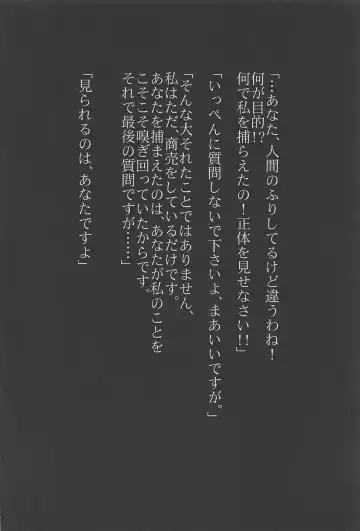 「…あなた、人間のふりしてるけど違うわね！
何が目的!?
何で私を捕らえたの！正体を見せなさい!!」
「いっぺんに質問しないで下さいよ、まあいいですが。」
「そんな大それたことではありません、
私はただ、商売をしているだけです。
あなたを捕まえたのは、あなたが私のことを
こそこそ嗅ぎ回っていたからです。
それで最後の質問ですが……」
「見られるのは、あなたですよ」